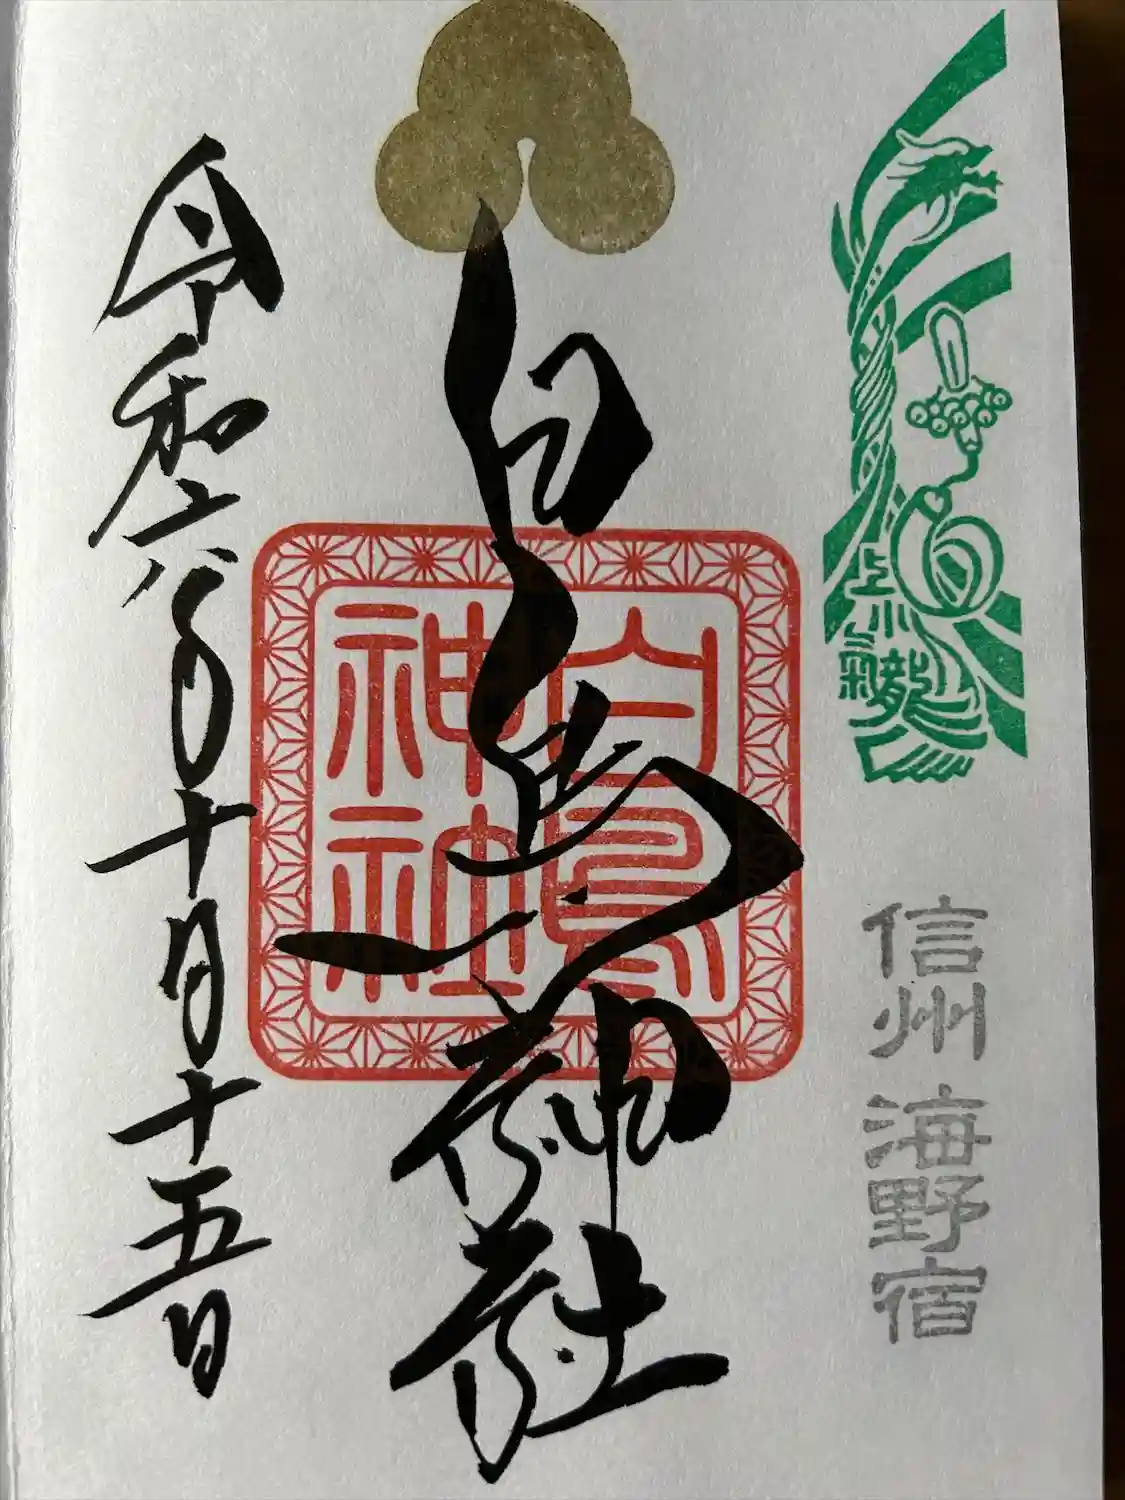 上小
龍氣
信州 海野宿
白鳥神社
白鳥
神社
令和六年十月十五日